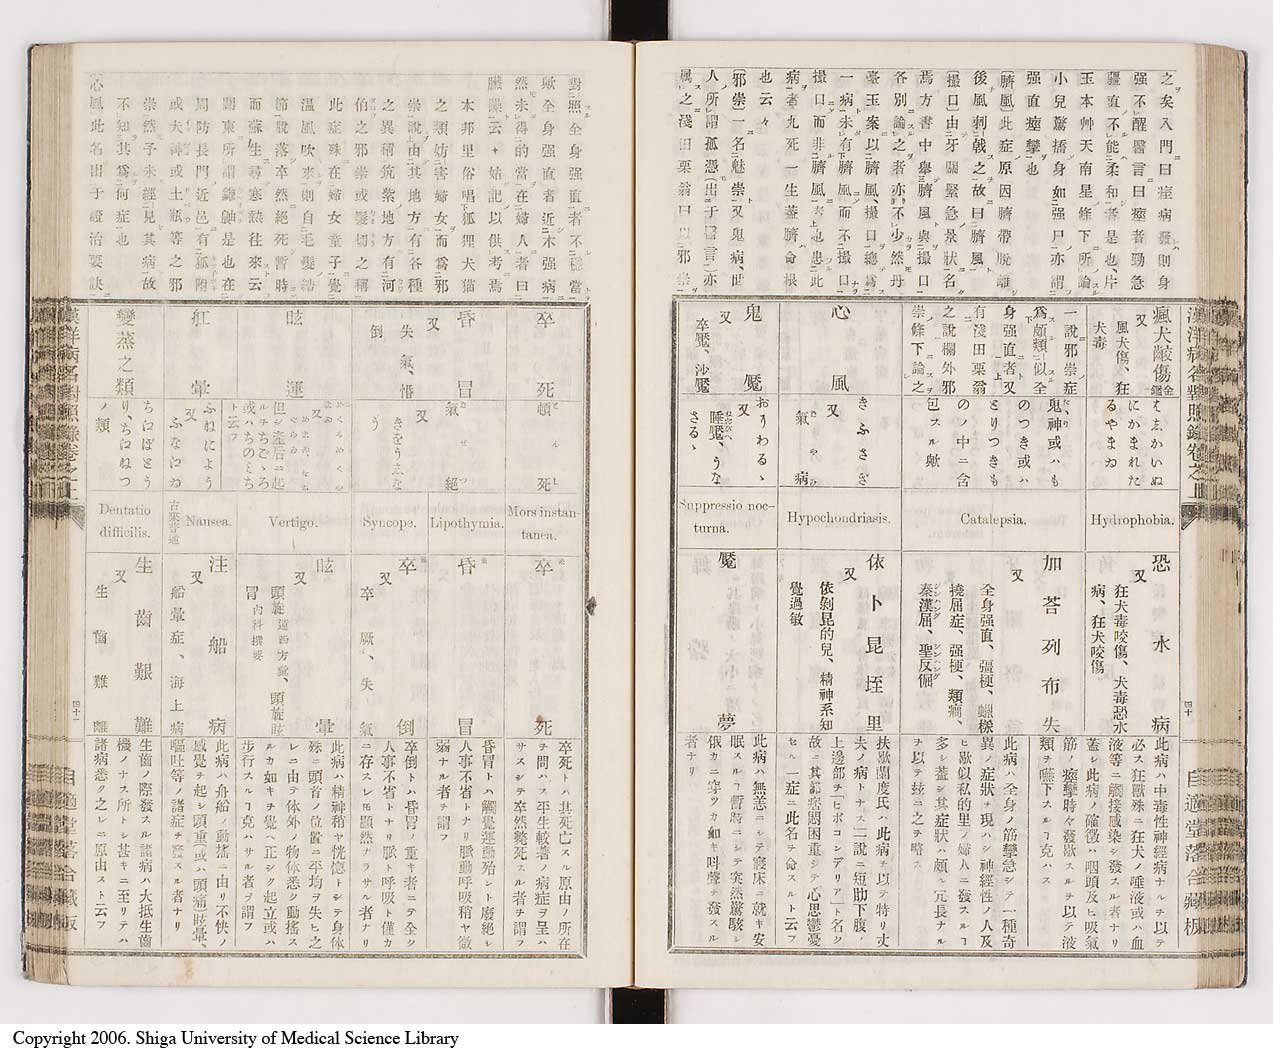 之矣入門曰痙病發則身
强不醒醫言曰瘈者勁急
疆直不能柔和者是也、片
玉本艸天南星條下所論
小兒驚搐身如强尸亦謂
强直瘈攣也
臍風此症原因臍帶脫離
後風刺戟之故曰臍風
撮口由牙關緊急景狀名
焉方書中擧臍風與撮口
各別論之者亦不少然丹
臺玉案以臍風、撮口總爲
一病未有臍風而不撮口
撮口而非臍風者上也患此
病者九死一生蓋臍命根
也云々
邪祟一名魅祟又鬼病、世
人所謂孤憑出于醫言亦
属之淺田栗翁曰以邪祟
瘋犬齩傷
又
風犬傷、狂
犬毒
一說邪祟症
爲頗類似全
身强直者又
有淺田栗翁
之說欄外邪
祟條下論之
心風
鬼魘
又
卒魘、沙魘
はしかいぬ
にかまれた
るやまゐ
鬼神或ハも
のつき或ハ
とりつきも
のノ中ニ含
包スル歟
きふさぎ
氣病
おりわるゝ
又
睡魘、うな
さるゝ
Hydrophobia.
Catalepsia.
Hypochondriasis.
Suppressio noc-
turna.
恐水病
又
狂犬毒咬傷、犬毒恐水
病、狂犬咬傷
加荅列布失
又
全身强直、彊梗、蠟樣
撓屈症、强梗、類癇、
秦漢屈、聖反倔
依卜昆垤里
又
依剝昆的兒、精神系知
覺過敏
魘夢
此病ハ中毒性神經病ナルヲ以テ
必ス狂獸殊ニ狂犬ノ唾液或ハ血
液等ニ觸接感染シ發スル者ナリ
蓋シ此病ノ確徵ハ咽頭及ヒ吸氣
筋ノ瘈攣時々發歇スルヲ以テ液
類ヲ嚥下スルヿ克ハス
此病ハ全身ノ筋攣急シテ一種奇
異ノ症狀ヲ現ハシ神經性ノ人及
ヒ歇似私的里ノ婦人ニ發スルヿ
多シ蓋シ其症狀ハ頗ル冗長ナル
ヲ以テ玆ニ之ヲ略ス
扶歇蘭度氏ハ此病ヲ以テ特リ丈
夫ノ病トナス一說ニ短肋下腹ノ
上邊部ヲ「ヒポコンデリア」ト名ク
故ニ其部痞悶困重シテ心思鬱憂
セル一症ニ此名ヲ命スルト云フ
此病ハ無恙ニシテ寢床ニ就キ安
眠スルヿ暫時ニシテ突然驚駭シ
俄カニ穿ツカ如キ叫聲ヲ發スル
者ナリ
漢洋病名對照錄卷之上
四十
自適堂落合藏板
對照全身强直者不穩當
歟全身强直者近木强病
然未得的當在婦人者曰
臟躁云々姑記以供考焉
本邦里俗唱狐狸犬猫
之類妨害婦女而爲邪
祟說由其地方有各種
之異稱筑紫地方有河
伯之邪祟或髮切之稱
此症殊在婦女童子覺
溫風吹來則自毛髮結
節脫落卒然絕死暫時
而蘇生尋寒熱往來云
關東所謂鎌鼬是也在
周防長門近邑有狐附
或犬神或土瓶等之邪
祟然予未經見其病故
不知其爲何症也
心風此名出于證治要訣
卒死
昏冒
又
失氣、惛
倒
眩運
舡暈
變蒸之類
頓死
氣絕
又
きをうしな
う
めくるめくシ
又
但シ產后ニ起
ルヲちごゝろ
或ハちのミち
ト云フ
ふねによう
又
ふなゐゐ
ちゑぼとう
り、ちゑねつ
ノ類
Mors instan-
tanea.
Lipothymia.
Syncope.
Vertigo.
Nausea.
古來普通
Dentatio
difficilis.
卒死
昏冒
卒倒
又
卒厥、失氣
眩暈
又
頭旋遠西方彙、頭旋眩
冒內科撰要
注船病
又
船暈症、海上病
生齒艱難
又
生齒難離
卒死トハ其死亡スル原由ノ所在
ヲ問ハス平生較著ノ病症ヲ呈ハ
サスシテ卒然斃死スル者ヲ謂フ
昏冒トハ觸覺運動殆シト廢絕シ
人事不省トナリ脈動呼吸稍ヤ微
弱ナル者ヲ謂フ
卒倒トハ昏冒ノ重キ者ニテ全ク
人事不省トナリ脈ト呼吸ト僅カ
ニ存スレ𪜈顯然ナラサル者ナリ
此病ハ精神稍ヤ恍惚トシテ身体
殊ニ頭首ノ位置ニ平均ヲ失ヒ之
レニ由テ体外ノ物体悉ク動搖ス
ルカ如キヲ覺ヘ正シク起立或ハ
步行スルヿ克ハサル者ヲ謂フ
此病ハ舟船ノ動搖ニ由リ不快ノ
感覺ヲ起シ頭重或ハ頭痛眩暈、
嘔吐等ノ諸症ヲ發スル者ナリ
生齒ノ際發スル諸病ハ大抵生齒
機ノナス所トシ甚キニ至リテハ
諸病悉ク之レニ原由スト云フ
漢洋病名對照錄卷之上
四十一
自適堂落合藏板
Copyright 2006. Shiga University of Medical Science Library